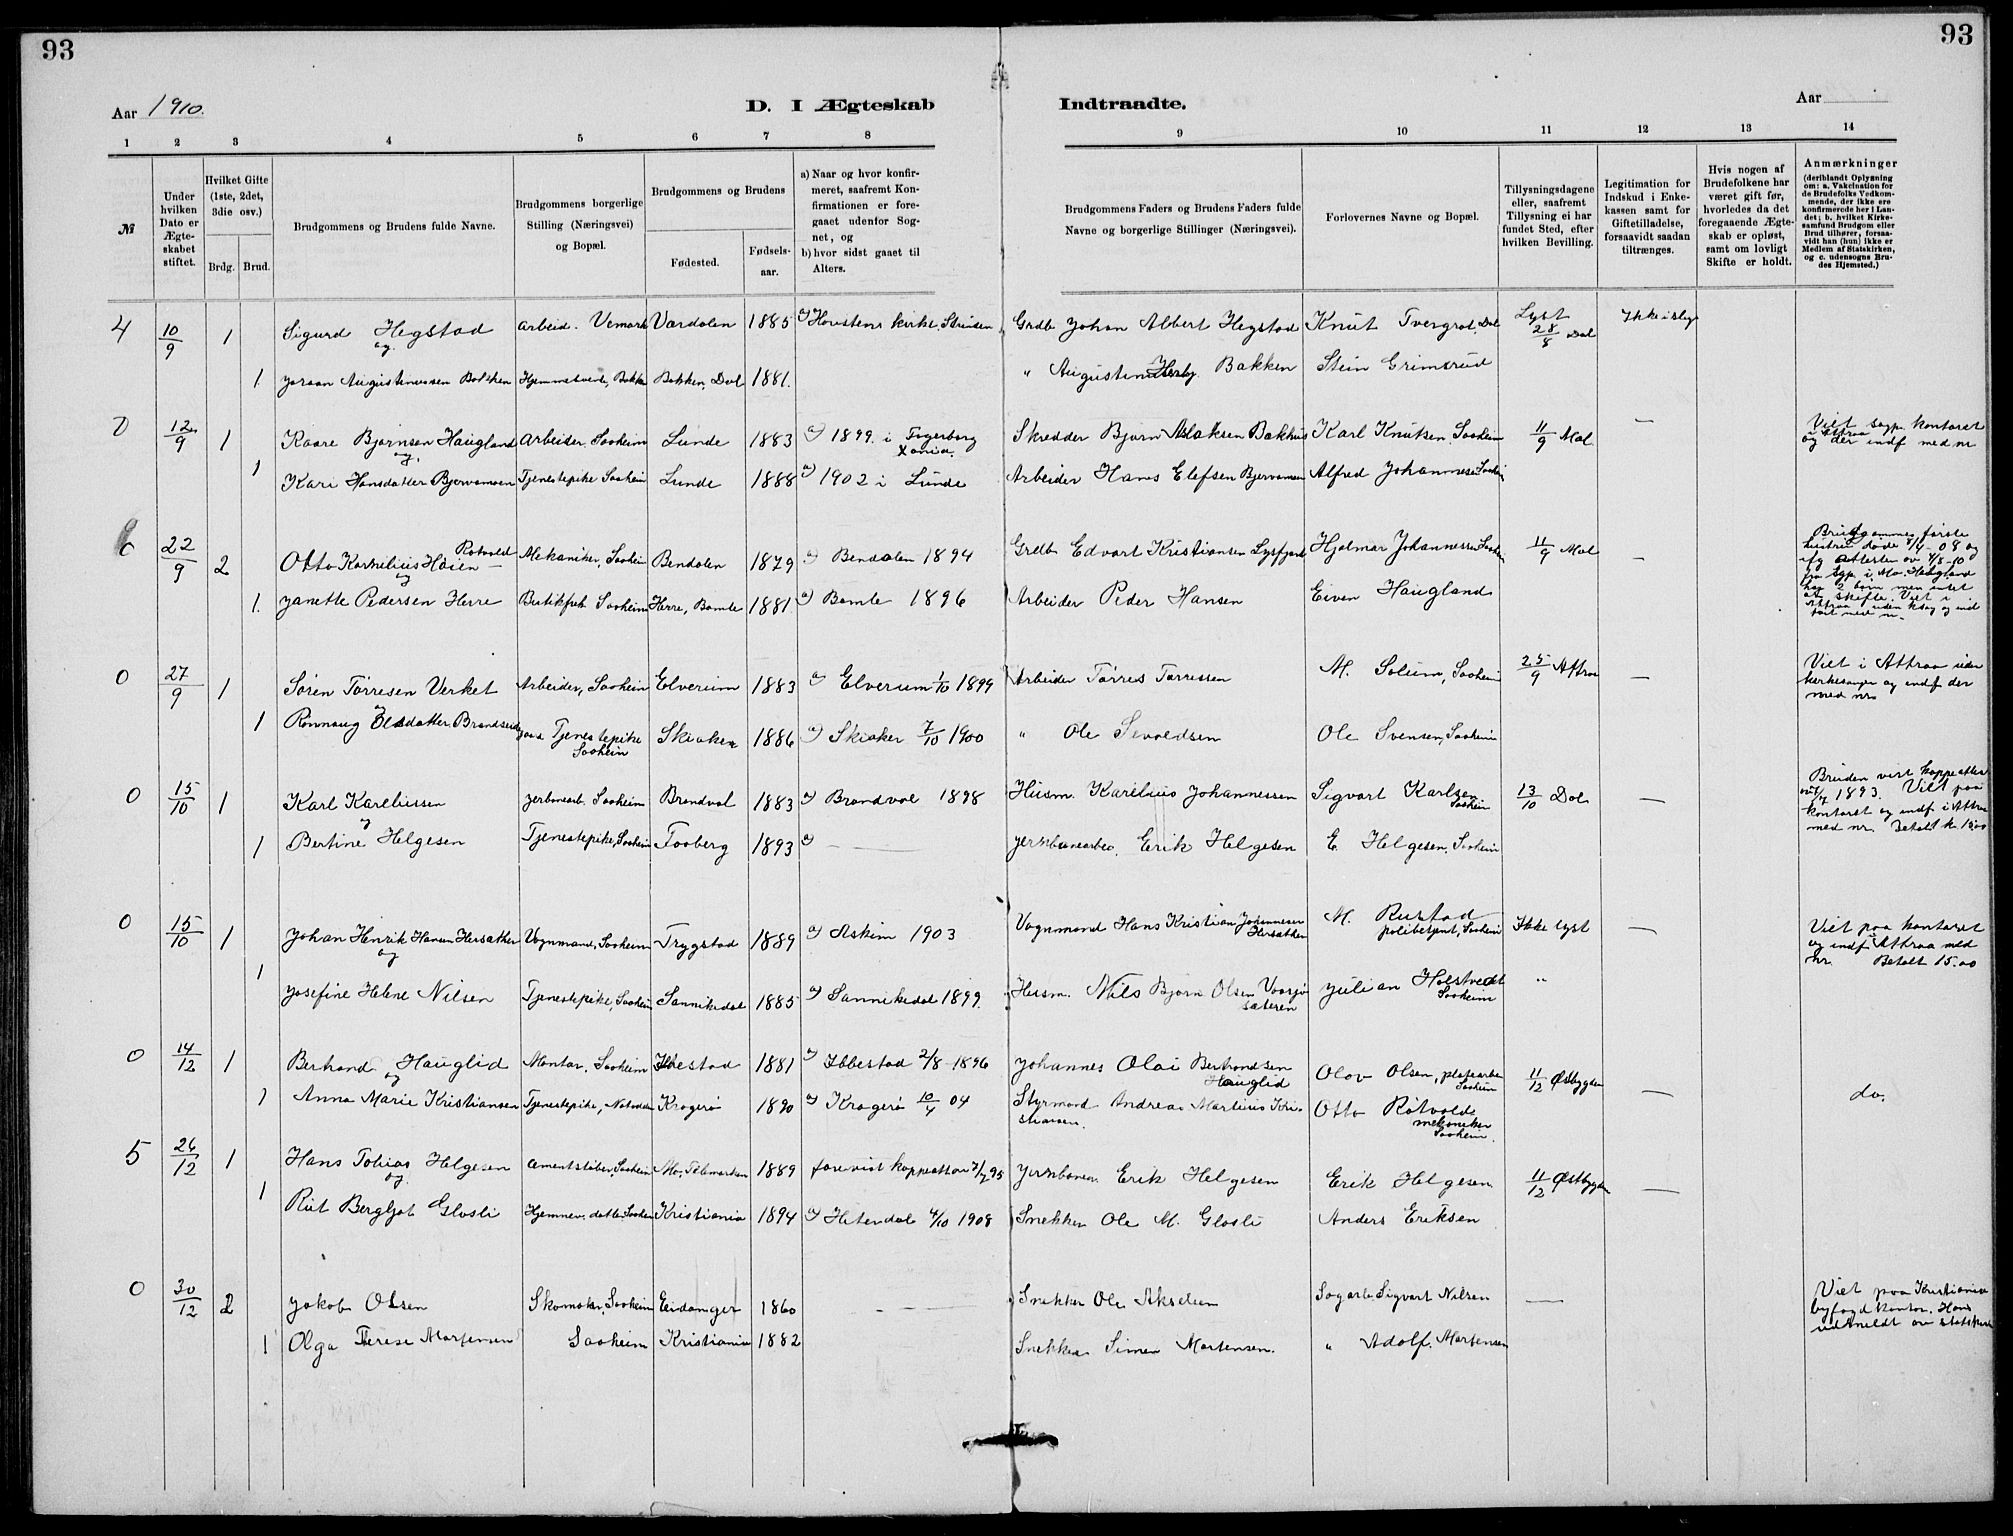 93
93
Aar 1910.
D. I Ægteskab
Indtraadte.
Aar
1 2 3 4 5 6 7 8 9 10 11 12 13 14
№
Under hvilken Dato er Ægte-skabet stiftet.
Hvilket Gifte (1ste, 2det, 3die osv.)
Brdg. Brud.
Brudgommens og Brudens fulde Navne.
Brudgommens borgerlige Stilling (Næringsvei) og Bopæl.
Brudgommens og Brudens
Fødested.
Fødsels-aar.
a) Naar og hvor konfir-meret, saafremt Kon-firmationen er fore-gaaet udenfor Sog-net, og
b) hvor sidst gaaet til Alters.
Brudgommens Faders og Brudens Faders fulde Navne og borgerlige Stillinger (Næringsvei).
Forlovernes Navne og Bopæl.
Tillysningsdagene eller, saafremt Tillysning ei har fundet Sted, efter hvilken Bevilling.
Legitimation for Indskud i Enke-kassen samt for Giftetilladelse, forsaavidt saadan tiltrænges.
Hvis nogen af Brudefolkene har været gift før, hvorledes da det foregaaende Ægte-skab er opløst, samt om lovligt Skifte er holdt.
Anmærkninger (deriblandt Oplysning om: a. Vakcination for de Brudefolks Vedkom-mende, der ikke ere konfirmerede her i Lan-det; b. hvilket Kirke-samfund Brudgom eller Brud tilhører, forsaa-vidt han (hun) ikke er Medlem af Statskirken, og c. udensogns Bru-des Hjemsted.)
4 10/9 1 Sigurd Hegstad Arbeid. Vemork Værdalen 1885 a) Hovstens kirke, Strinden Grdb Johan Albert Hegstad Knut Tvergrot, Dal Lyst 28/8 Dal
og
1 Joraan Augustinussen Bakken Bakken, Dal 1881. " Augustinus Bakken Stein Grimsrud
0 12/9 1 Kaare Bjørnsen Haugland Arbeider, Saaheim Lunde 1883 a) 1899 i Fagerborg Xania. Skredder Bjørn Aslaksen Bakhus Karl Knutsen Saaheim 11/9 Mæl — Viet kontoret og der indf med nr
og
1 Kari Hansdatter Bjervamoen Tjenestepike Saaheim Lunde 1888 a) 1902 i Lunde Arbeider Hans Elefsen Bjervamoen Alfred Johannesen Saaheim
6 22/9 2 Otto Kornelius Høien Rotvold Mekaniker, Saaheim Beudalen 1879 a) Beudalen 1894 Grdb Edvart Kristiansen Lysfjord Hjalmar Johannessen Saaheim 11/9 Mæl — Brudgommens første hustru døde 8/4-08 og
og
1. Janette Pedersen Herre Butikfrøk Saaheim Herre, Bamle 1881 a) Bamle 1896 Arbeider Peder Hansen Eiven Haugland
0 27/9 1 Søren Tørresen Verket Arbeider, Saaheim Elverum 1883 a) Elverum 1/10 1899 Arbeider Tørres Tørressen M. Solum, Saaheim 25/9 Attraa — Viet i Attraa uden kirkesanger og indf der med nr
og
1 Rønnaug Olsdatter Brandseide Tjenestepike Saaheim Skiaker 1886 a) Skiaker 7/10 1900 " Ole Sevoldsen Ole Svensen, Saaheim
0 15/10 1 Karl Kareliussen Jerbanearb. Saaheim Brandval 1883 a) Brandval 1898 Husm. Karelius Johannessen Sigvart Karlsen Saaheim 13/10 Dal — Bruden vist koppeattest 1893. Viet paa kontoret og indf i Attraa med nr Betalt k. 15.00
og
1 Bertine Helgesen Tjenestepike, Saaheim Faaberg 1893 a) — Jernbanearbeid. Erik Helgesen E. Helgesen, Saaheim
0 15/10 1 Johan Henrik Hansen Hersæther Vognmand, Saaheim Trygstad 1889 a) Askim 1903 Vognmand Hans Kristian Johannesen Hersæther M. Rustad politibetjent, Saaheim Ikke lyst — Viet paa kontoret og indf i Attraa med nr. Betalt 15.00
og
1 Josefine Helene Nilsen Tjenestepike, Saaheim Sannikedal 1885 a) Sannikedal 1899. Husm. Nils Bjørn Olsen Vaasjø sæteren Julian Holstvedt Saaheim "
0 14/12 1 Bertrand Hauglid Montør, Saaheim Ibbestad 1881 a) Ibbestad 2/8-1896 Johannes Olai Bertrandsen Hauglid Olav Olsen, platearbe Saaheim 11/12 Østbygden — do.
og
1 Anna Marie Kristiansen Tjenestepike, Notodden Kragerø 1890 a) Kragerø 10/4 04 Styrmand Andreas Martius Kristiansen. Otto Rotvold mekaniker Saaheim.
5 26/12 1 Hans Tobias Helgesen Cementstøber, Saaheim Mo, Telemarken 1889 forevist koppeatt av 7/7 95 Jernbanear. Erik Helgesen Erik Helgesen. 11/12 Østbygden —
og
1 Rut Bergljot Glosli Hjemmev. datter Saaheim Kristiania 1894 a) Hitterdal 4/10 1908 Snekker Ole M. Glosli Anders Eriksen
0 30/12 2 Jakob Olsen Skomaker, Saaheim Eidanger 1860 — Snekker Ole Akselsen Sagarb. Sigvart Nilsen — Viet paa Kristiania byfogd kontor. Hans utmeldt av statskirk
1 Olga Therese Mortensen Saaheim Kristiania 1882 Snekker Simen Mortensen. " Adolf Mortensen